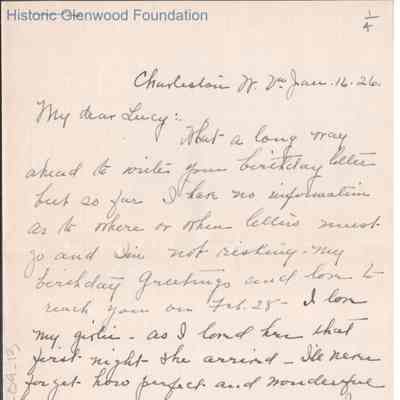 Historic Glenwood Foundation
1/4
Charleston W. Va Jan. 16. 26.
My dear Lucy:
What a long way
ahead to write your birthday letter
but so far I have no information
as to where or when letters must
go and I'm not risking my
birthday Greetings and love to
reach you on Feb. 28 - I love
my girlie - as I loved her that
first night she arrived - I'll never
forget how perfect and wonderful